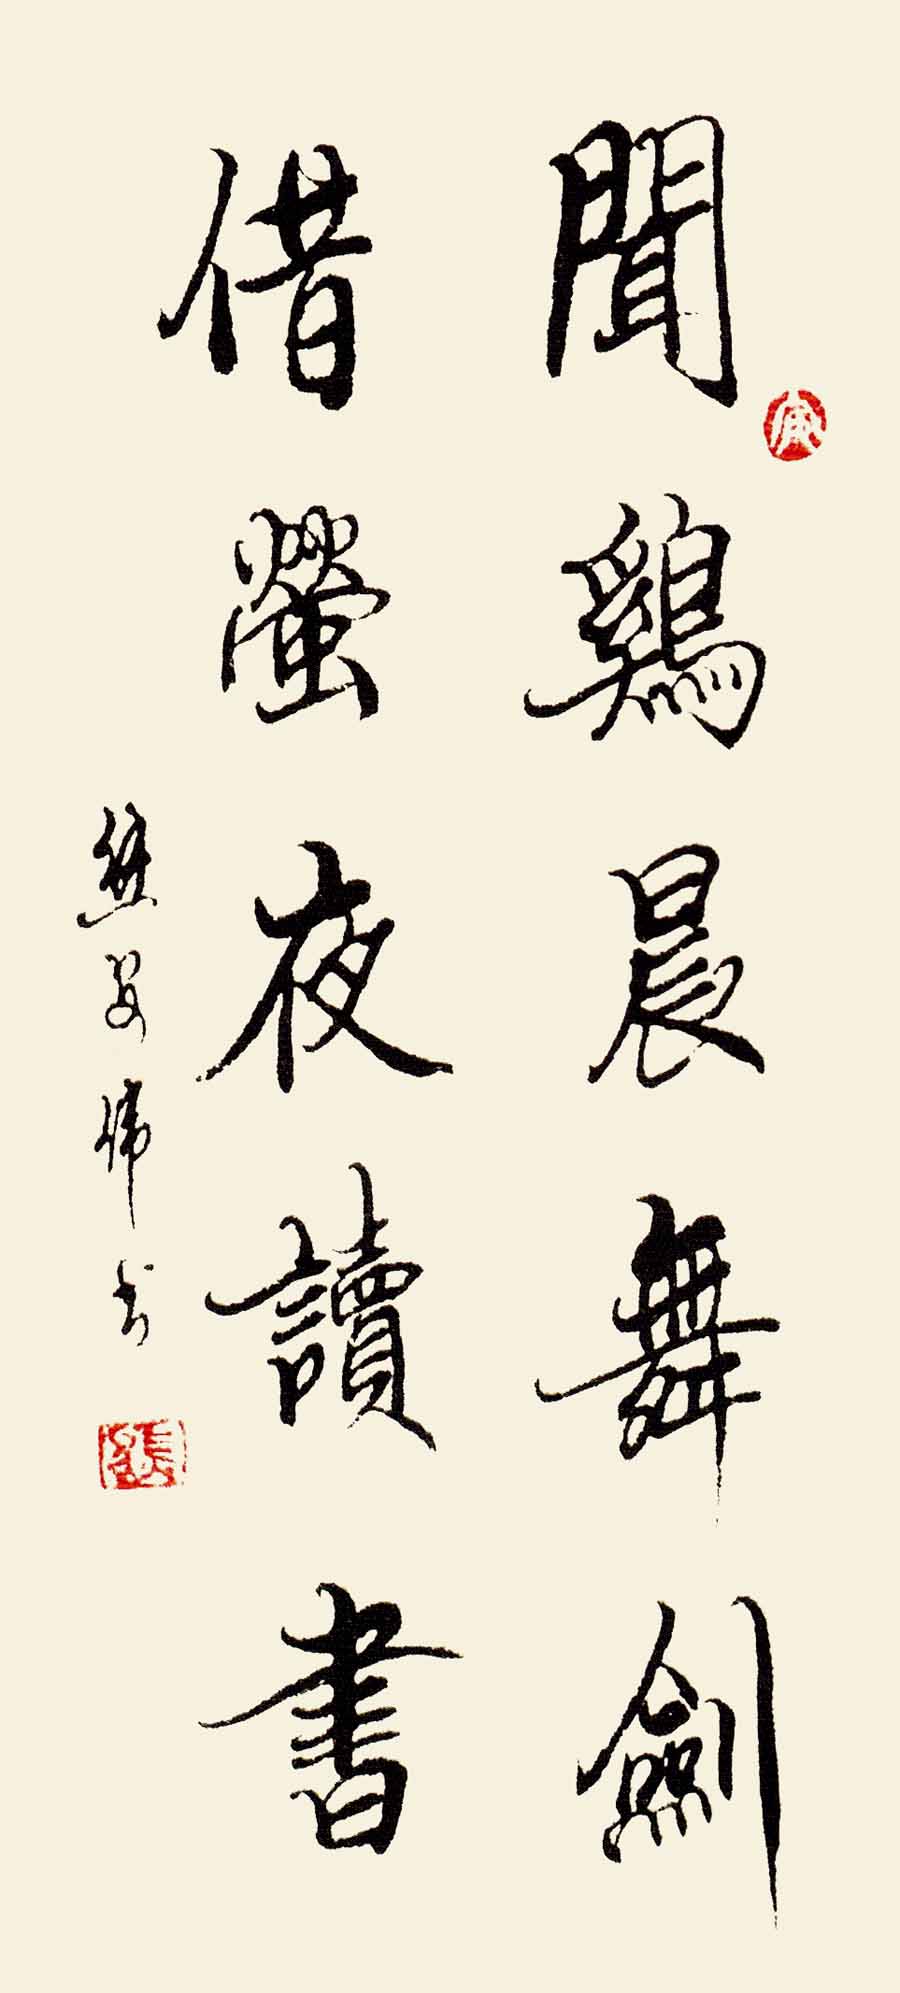 聞鷄晨舞劍
借螢夜讀書
书